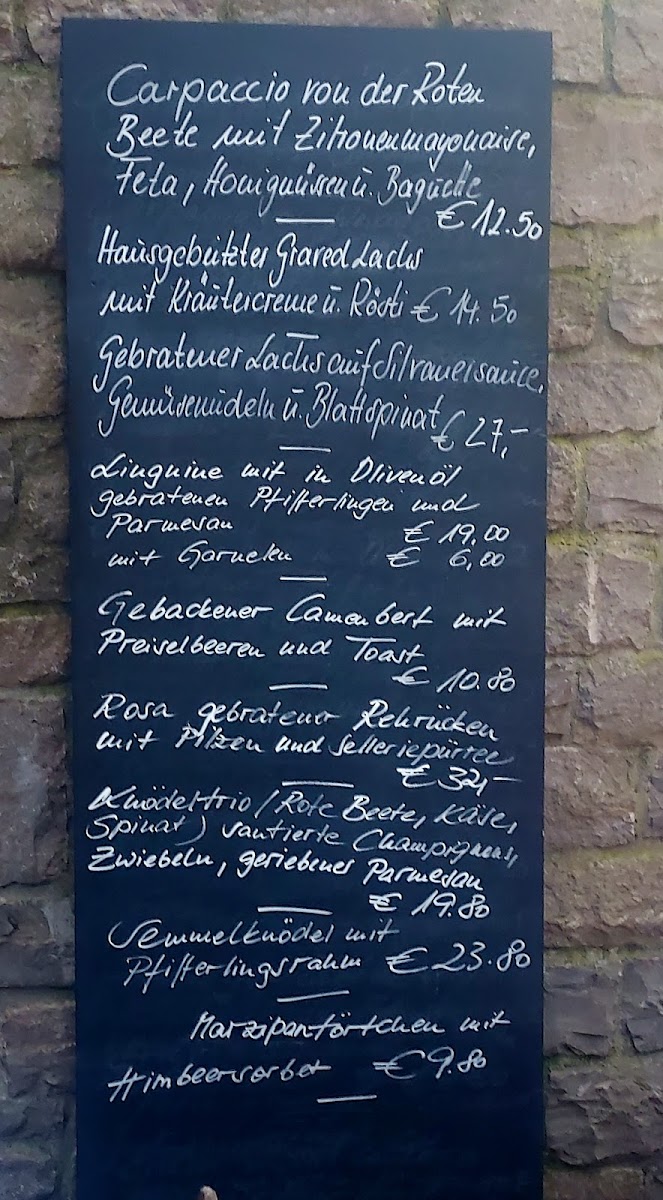 Carpaccio von der Roten
Beete mit Zitronenmayonaise,
Feta, Honignüssen u. Baguette
€ 12.50
Hausgebeitzter Graved Lachs
mit Kräutercreme u. Rösti € 14.50
Gebratener Lachs auf Silvanersauce,
Gemüsenudeln u. Blattspinat
€ 27,-
Linguine mit in Olivenöl
gebratenen Pfifferlingen und
Parmesan € 19,00
mit Garnelen € 6,00
Gebackener Camenbert mit
Preiselbeeren und Toast
€ 10.80
Rosa gebratener Rehrücken
mit Pilzen und Selleriepürree
€ 32,-
Knödeltrio (Rote Beete, Käse,
Spinat) santierte Champignons,
Zwiebeln, geriebener Parmesan
€ 19.80
Semmelknödel mit
Pfifferlingsrahm € 23.80
Marzipantörtchen mit
Himbeersorbet €9.80